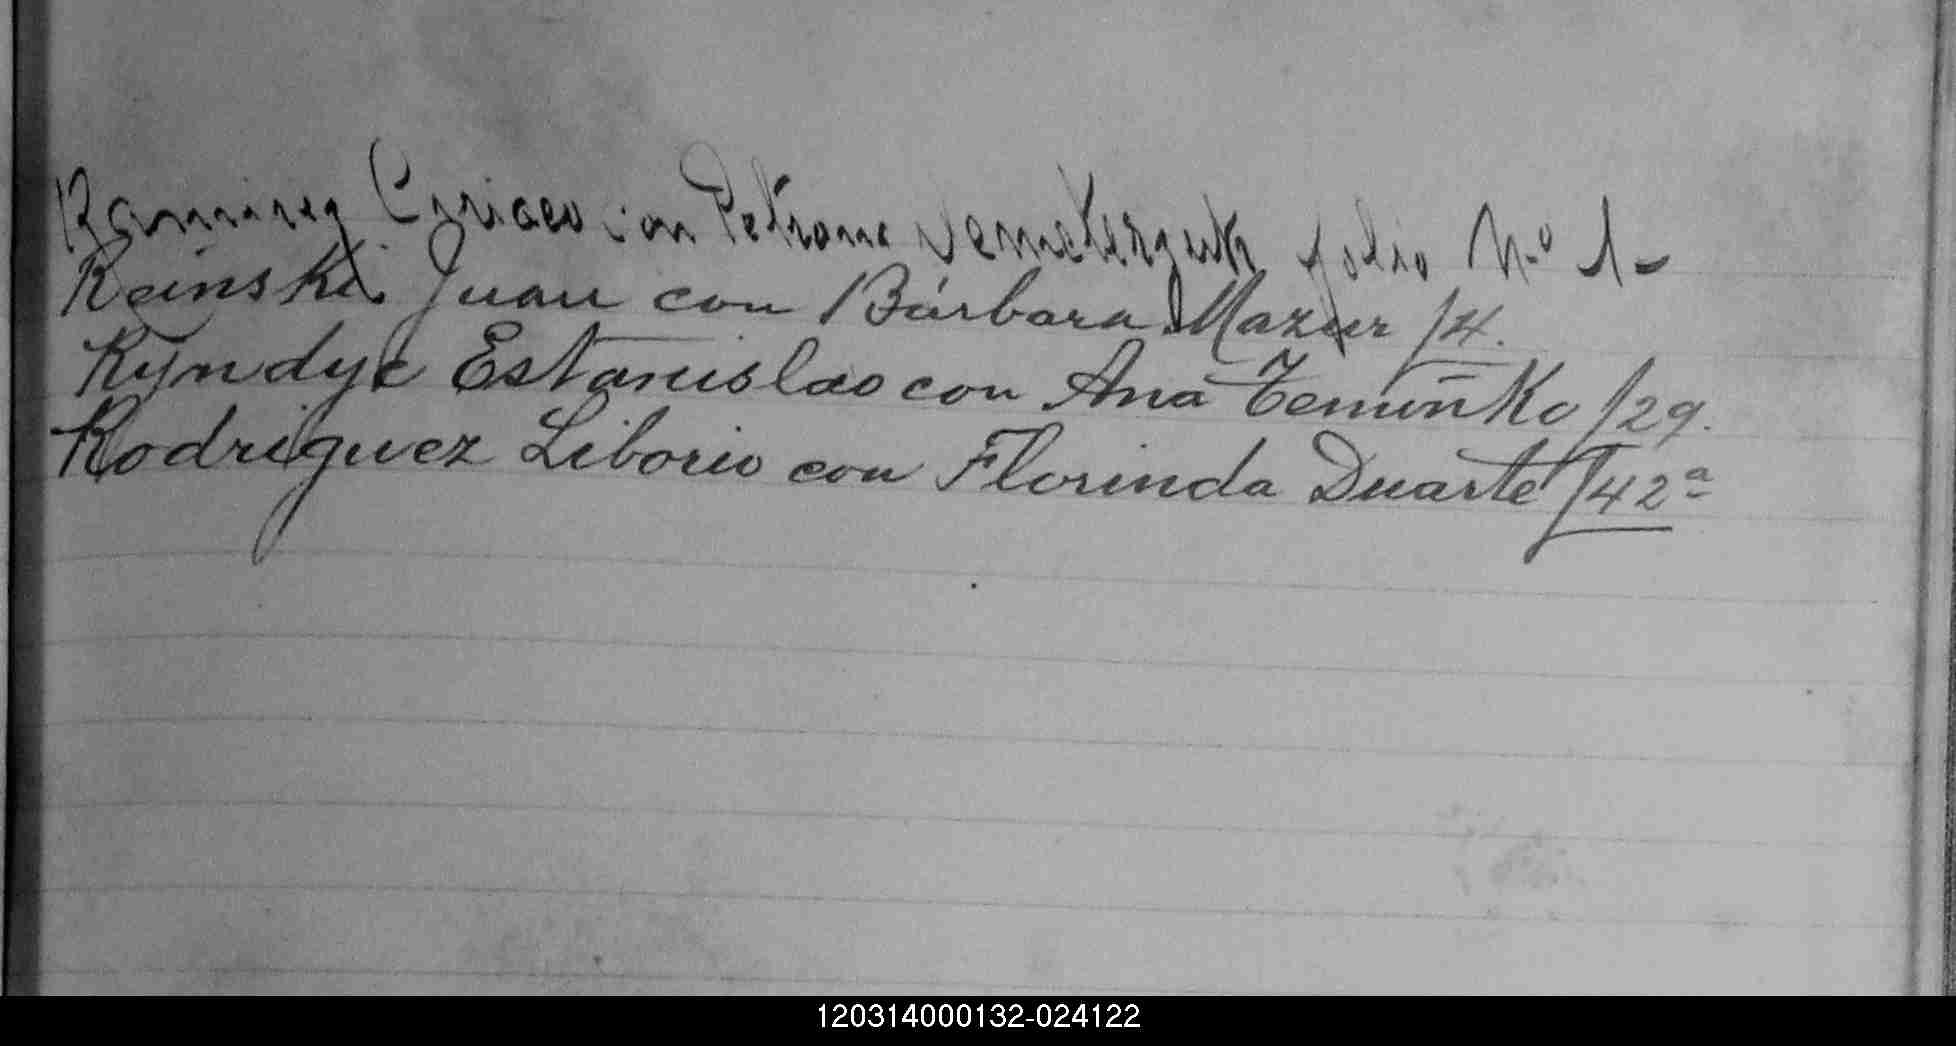 Ramirez Cyriaco con Petrona Demeterzuk folio Nº 1-
Reinski Juan con Bárbara Mazur /4.
Ryndyc Estanislao con Ana Temiñko /29.
Rodriguez Liborio con Florinda Duarte /42ª
120314000132-024122